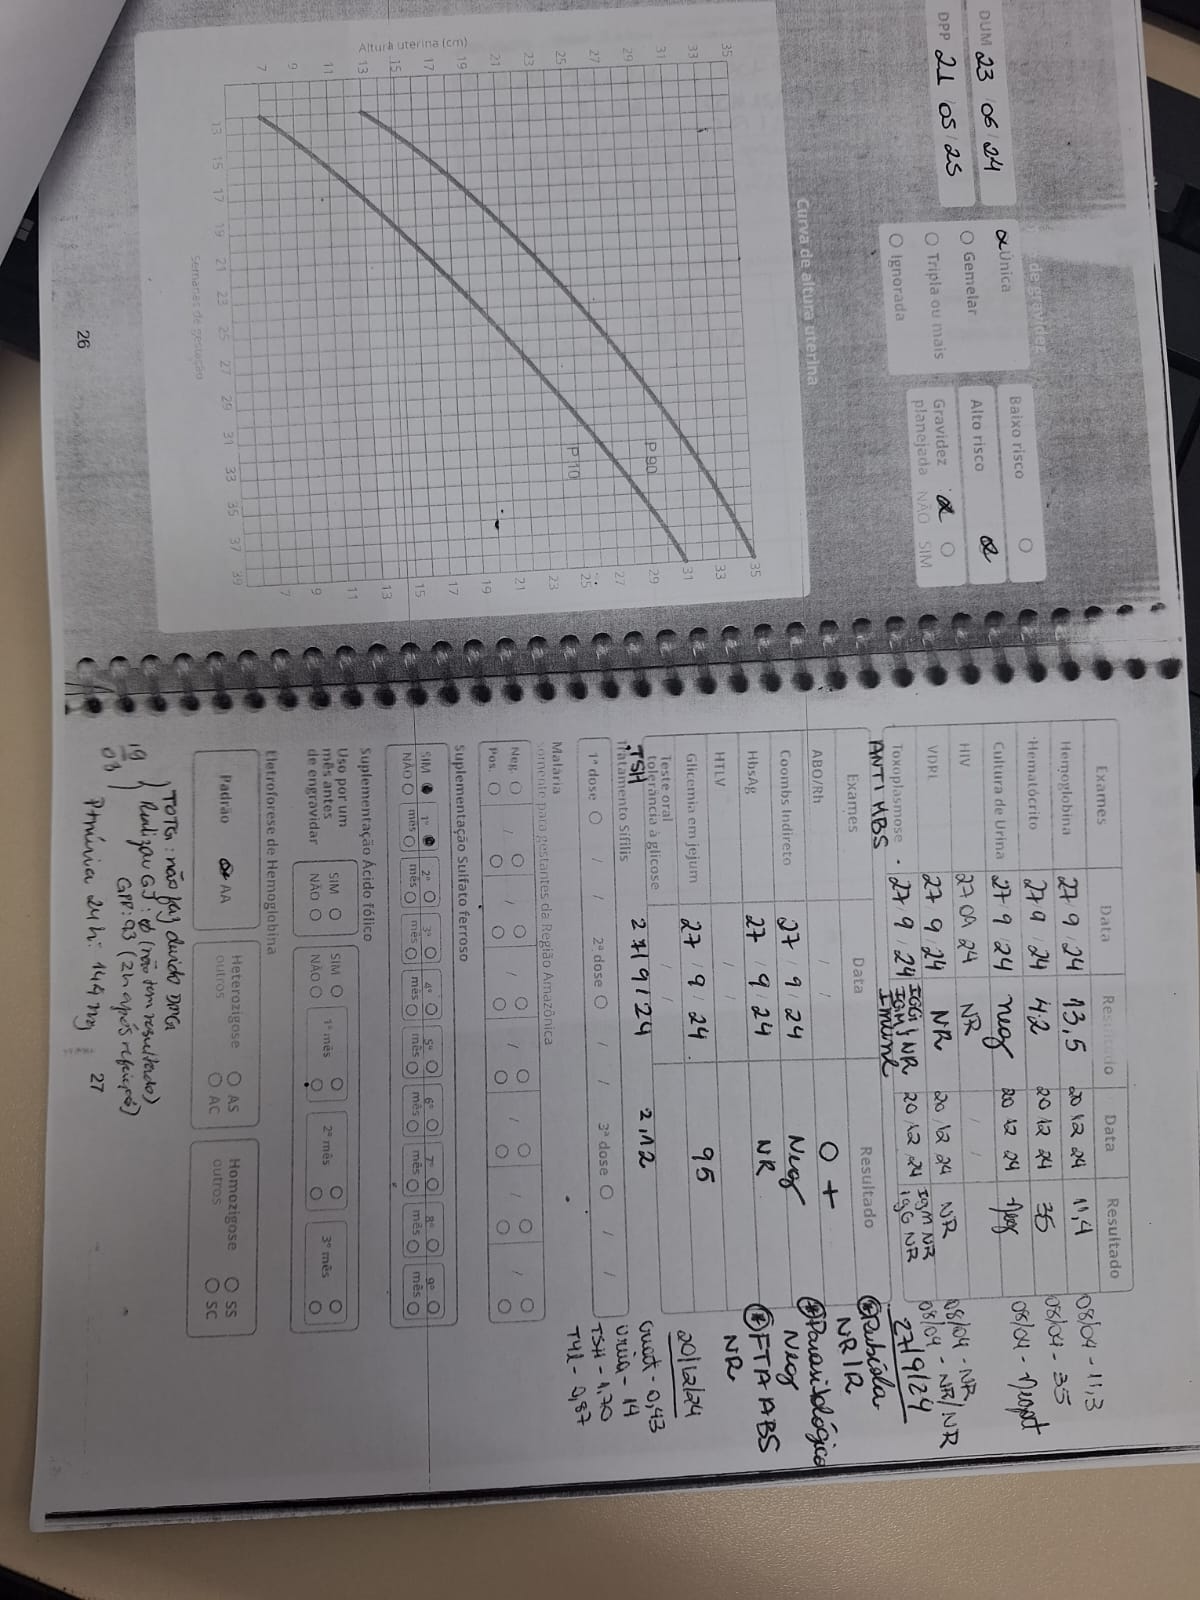 DUM 23 / 06 / 24
DPP 21 / 05 / 25
de gravidez
Única
Gemelar
Tripla ou mais
Ignorada
Baixo risco
Alto risco
Gravidez
planejada NÃO SIM
Curva de altura uterina
Altura uterina (cm)
35
33
31
29
27
25
23
21
19
17
15
13
11
9
7
P 90
P 10
35
33
31
29
27
25
23
21
19
17
15
13
11
9
7
13 15 17 19 21 23 25 27 29 31 33 35 37 39
Semanas de gestação
26
Exames Data Resultado Data Resultado
Hemoglobina 27 9 24 13,5 20 12 24 11,4 08/04 - 11,3
Hematócrito 27 9 24 42 20 12 24 35 08/04 - 35
Cultura de Urina 27 9 24 neg 20 12 24 neg 08/04 - negat
HIV 27 09 24 NR / / 08/04 - NR
VDRL 27 9 24 NR 20 12 24 NR 08/04 - NR/NR
Toxoplasmose 27 9 24 IGG IGM } NR 20 12 24 IgM NR IgG NR 27/9/24
ANTI HBS Imune
Exames Data Resultado
ABO/Rh / / O +
Coombs Indireto 27 / 9 / 24 Neg
HbsAg 27 / 9 / 24 NR
HTLV / /
Glicemia em jejum 27 / 9 / 24 95
Teste oral
tolerância à glicose / /
TSH 27/9/24 2,12
Rubéola
NR/R
Parasitológico
Neg
FTA ABS
NR
20/12/24
Creat - 0,43
Uréia - 14
TSH - 1,70
T4L - 0,87
Tratamento Sífilis
1ª dose / / 2ª dose / / 3ª dose / /
Malária
somente para gestantes da Região Amazônica
Neg. / / / / / /
Pos.
Suplementação Sulfato ferroso
SIM 1º 2º 3º 4º 5º 6º 7º 8º 9º
NÃO mês mês mês mês mês mês mês mês mês
Suplementação Ácido fólico
Uso por um
mês antes
de engravidar
SIM SIM
NÃO NÃO
1º mês 2º mês 3º mês
Eletroforese de Hemoglobina
Padrão AA
Heterozigose AS
outros AC
Homozigose SS
outros SC
19
03
TOTG: não fez devido DMG
Realizou GJ: ø (não tem resultado)
GPP: 93 (2h após refeição)
Ptnúria 24h: 144 mg
27